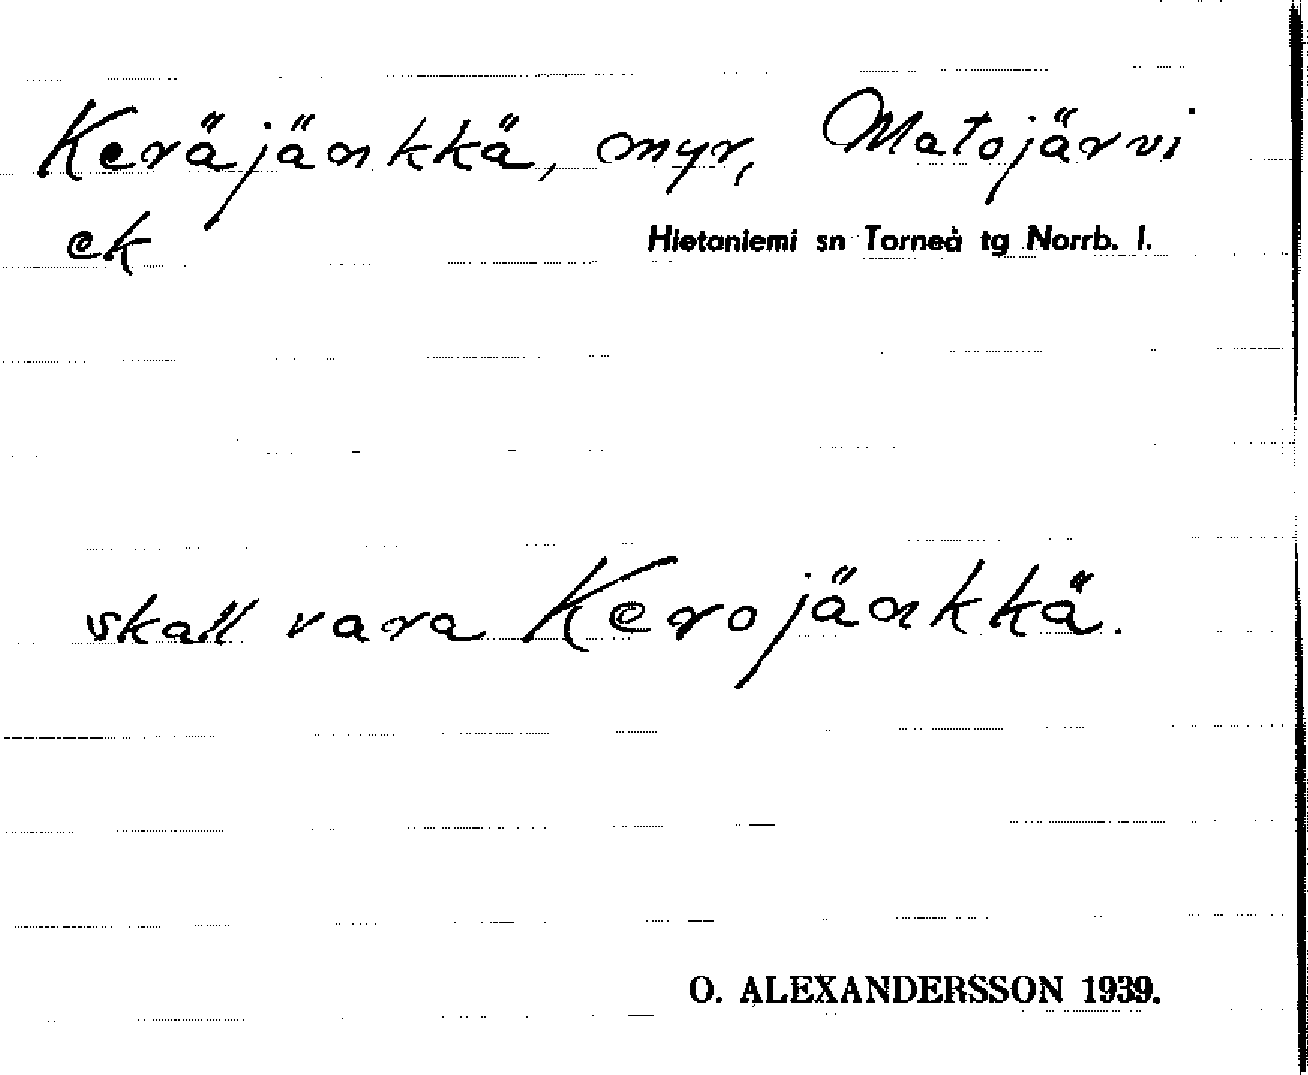 Keräjänkkä, myr, Matojärvi
ek Hietaniemi sn Torneå tg Norrb. l.
skall vara Kerojänkkä.
O. ALEXANDERSSON 1939.